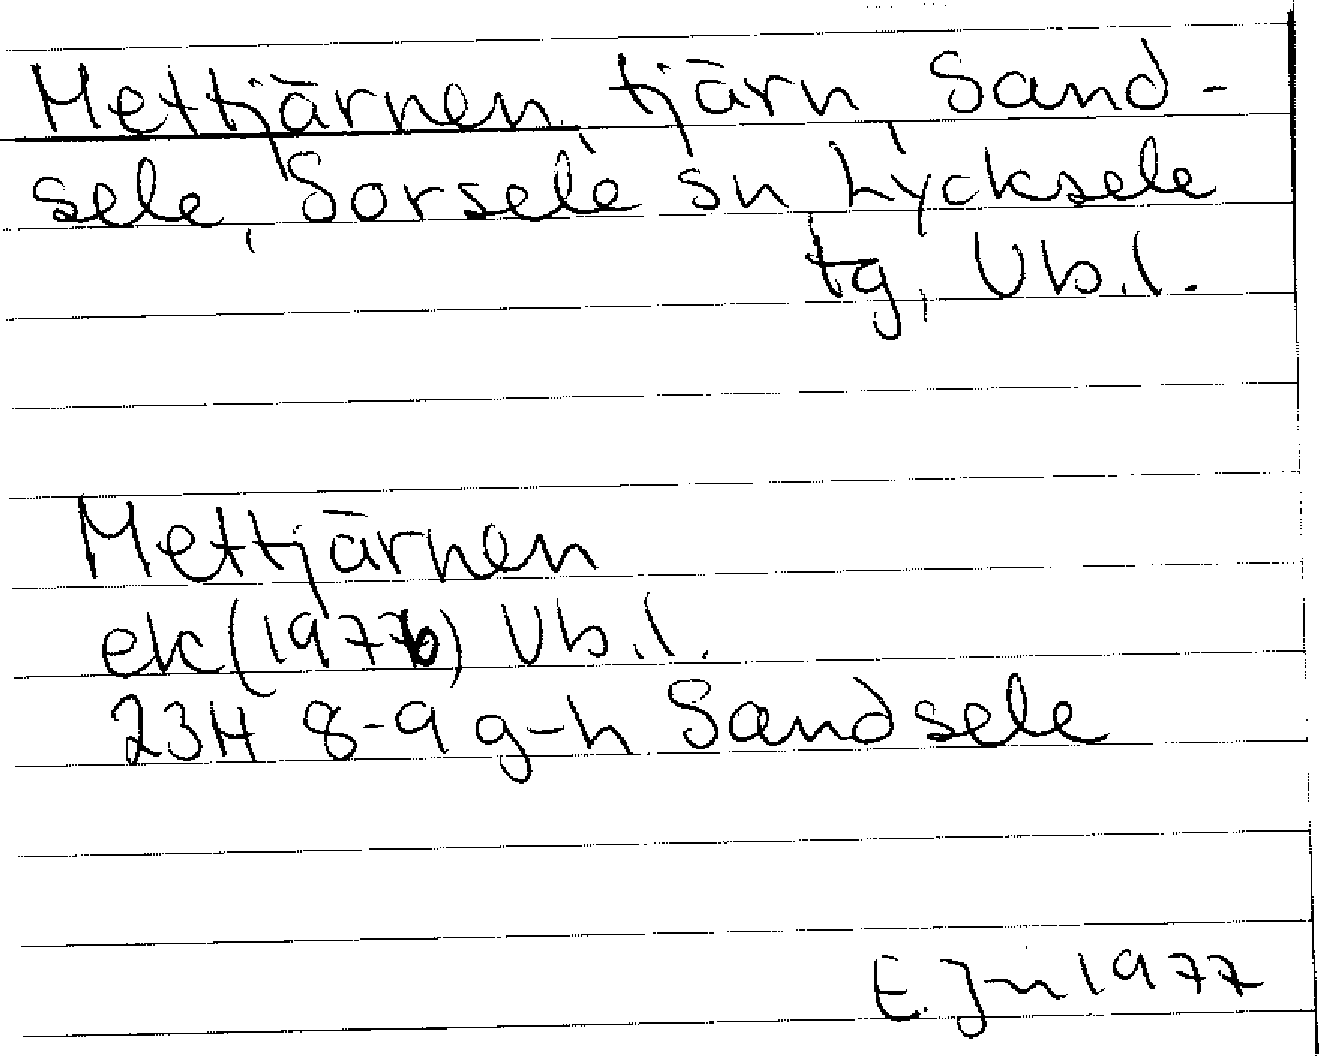 Mettjärnen, tjärn, Sand-
sele, Sorsele sn Lycksele
tg, Vb.l.
Mettjärnen
ek (1976) Vb.l.
23H 8-9 g-h Sandsele
E. Jn 1977